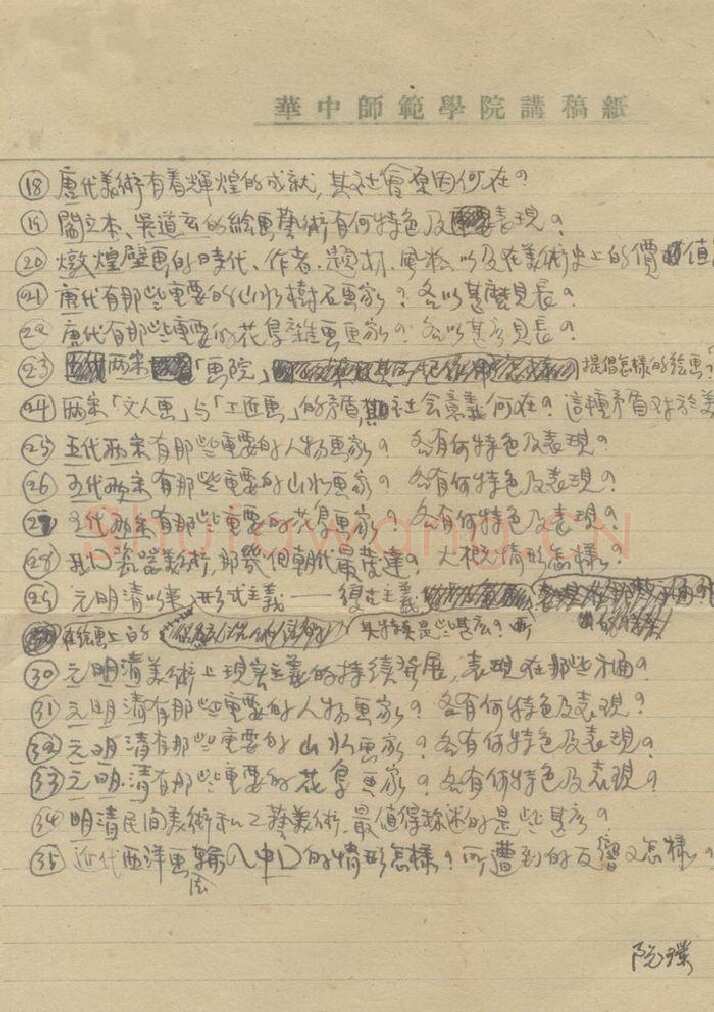 華中師範學院講稿紙
⑱ 唐代美術有着輝煌的成就,其社會原因何在?
⑲ 閻立本、吳道玄的繪画藝術有何特色及表現?
⑳ 燉煌壁画的時代、作者、題材、風格以及在美術史上的價值
㉑ 唐代有那些重要的山水樹石画家?各以甚麼見長?
㉒ 唐代有那些重要的花鳥雜画画家?各以甚麼見長?
㉓ 两宋「画院」提倡怎樣的绘画?
㉔ 两宋「文人画」与「工匠画」的矛盾,其社会意義何在?這種矛盾对於美
㉕ 五代两宋有那些重要的人物画家?各有何特色及表現?
㉖ 五代两宋有那些重要的山水画家?各有何特色及表現?
㉗ 五代两宋有那些重要的花鳥画家?各有何特色及表現?
㉘ 我囗瓷器美術,那幾個朝代最發達?大概情形怎樣?
㉙ 元明清以來形式主義——復古主義
在绘画上的 其特奌是些甚么?
㉚ 元明清美術上現实主義的持续發展,表現在那些方面?
㉛ 元明清有那些重要的人物画家?各有何特色及表現?
㉜ 元明清有那些重要的山水画家?各有何特色及表現?
㉝ 元明清有那些重要的花鳥画家?各有何特色及表現?
㉞ 明清民间美術和工藝美術,最值得称述的是些甚么?
㉟ 近代西洋画輸入中囗的情形怎樣?所遭到的反響又怎樣?
阮璞
Shujawang.cn